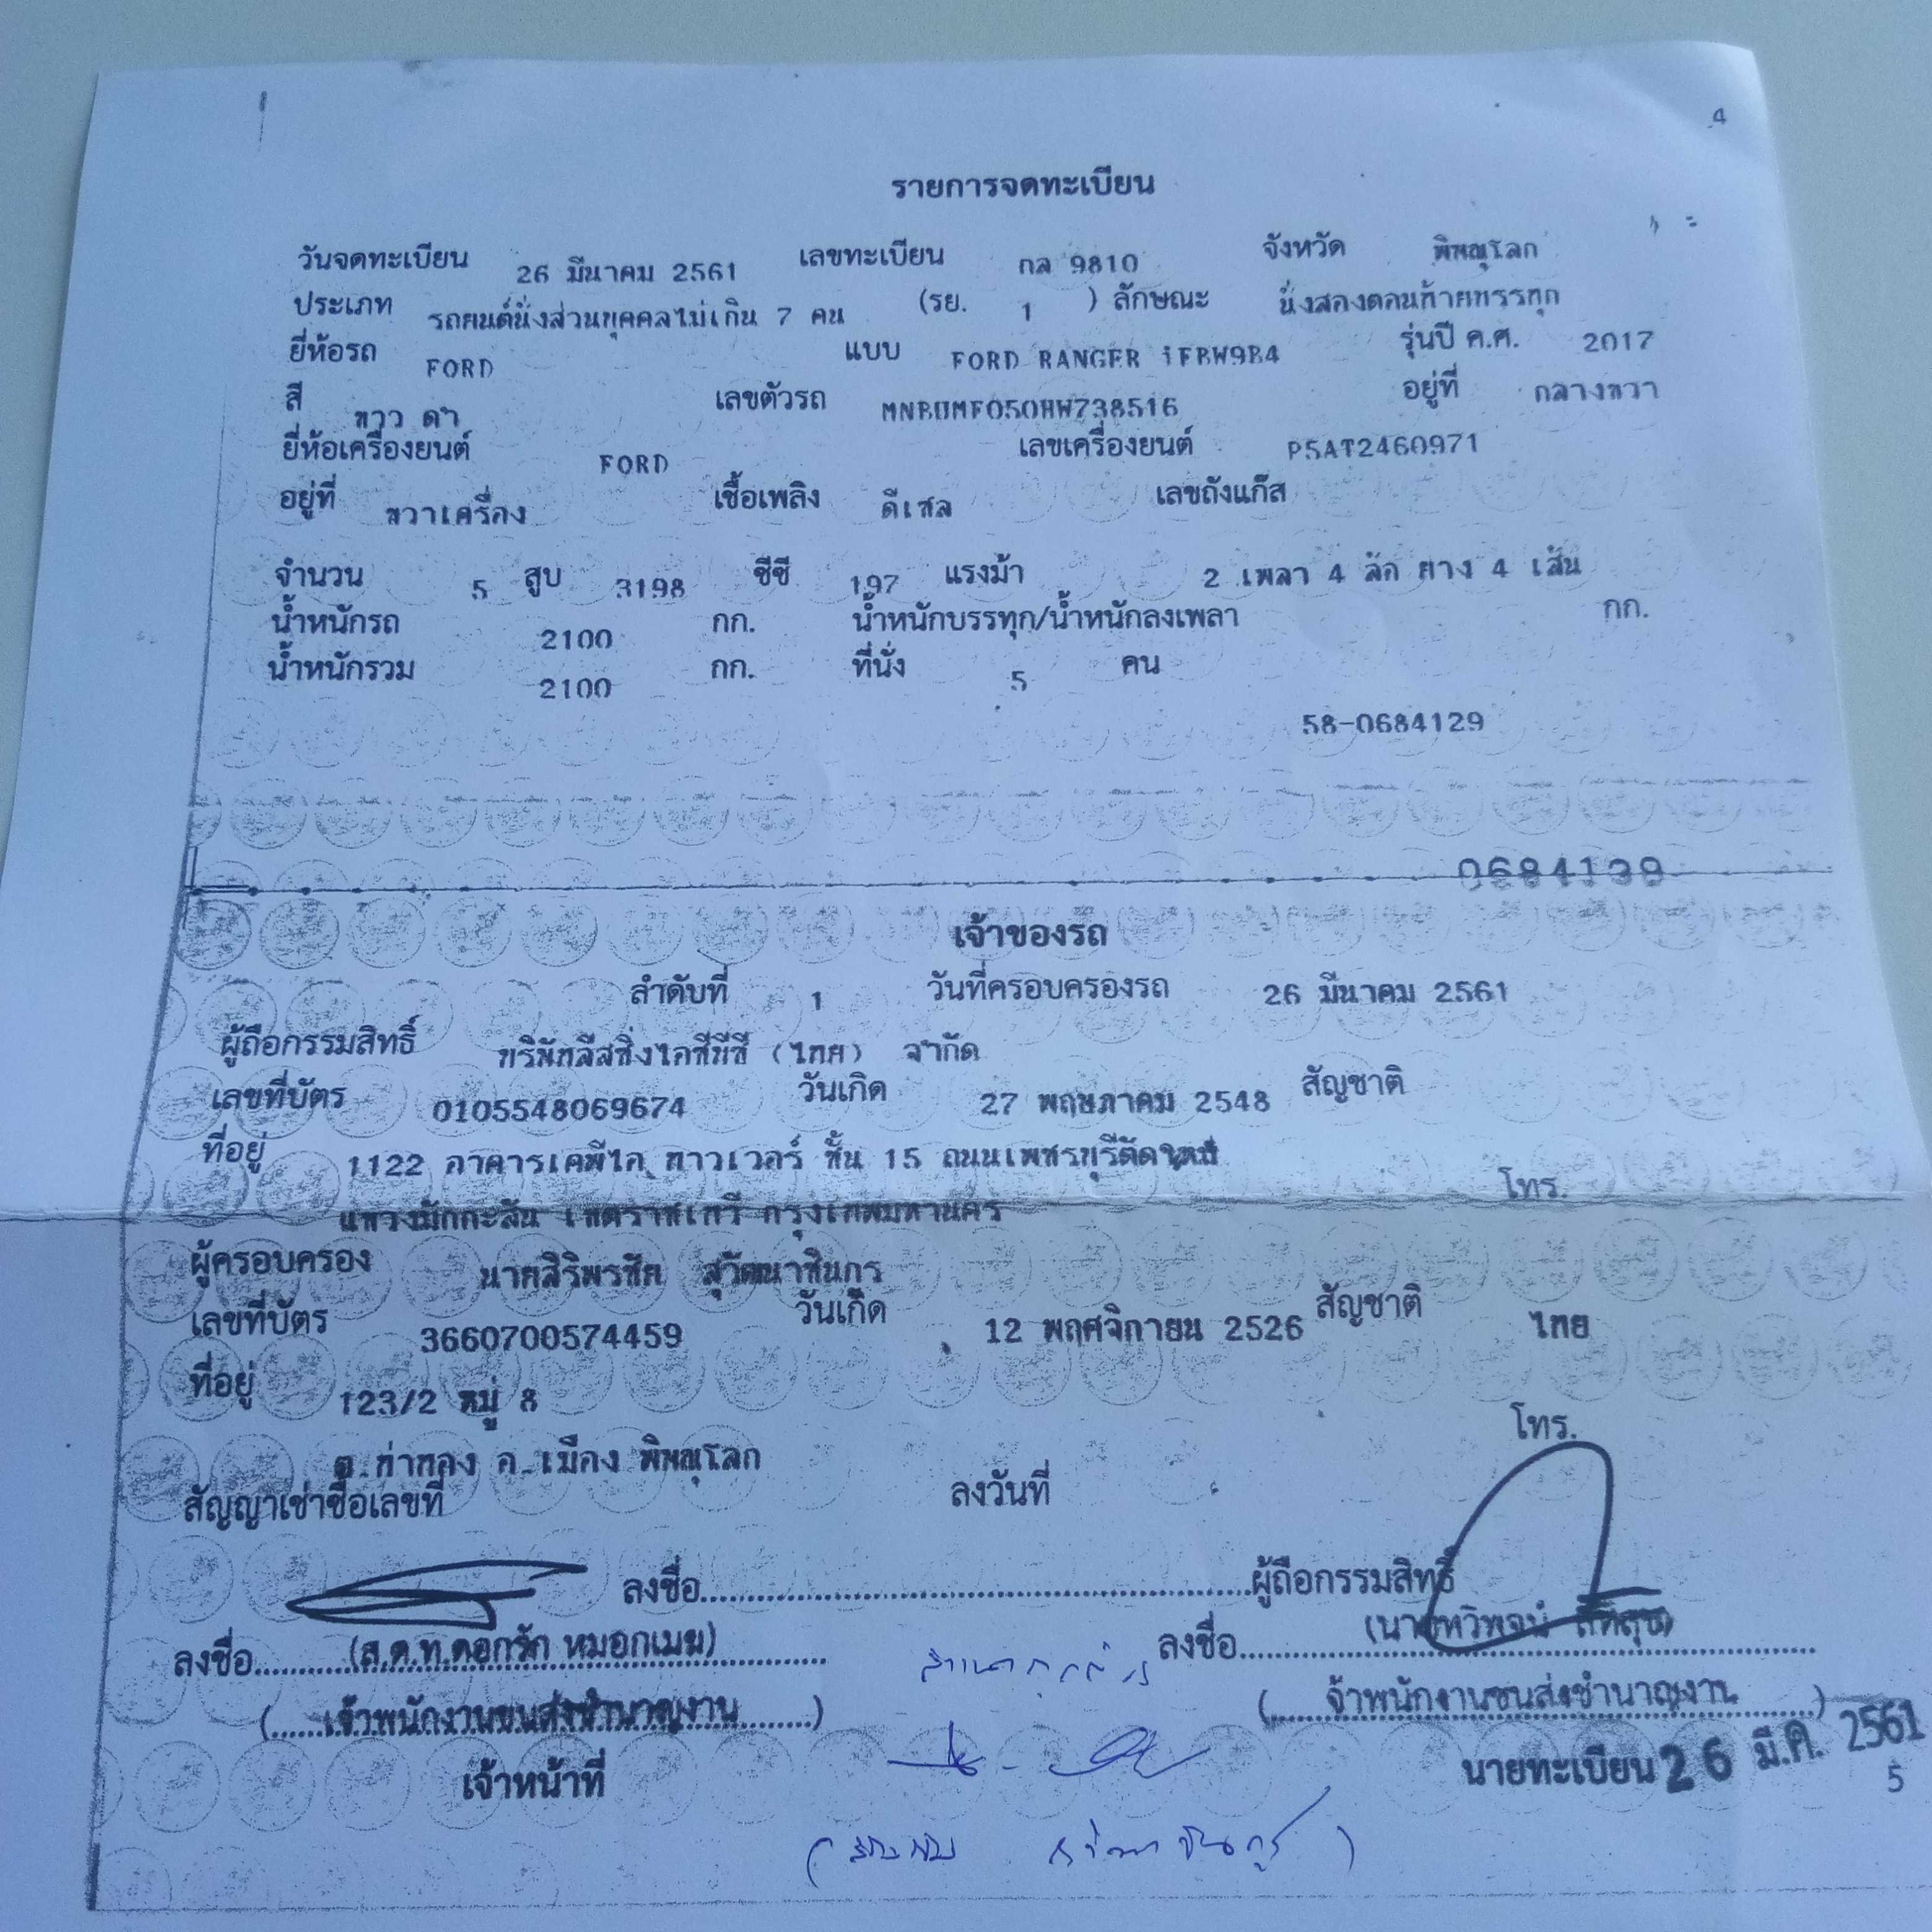 4
รายการจดทะเบียน
วันจดทะเบียน 26 มีนาคม 2561 เลขทะเบียน กล 9810 จังหวัด พิษณุโลก
ประเภท รถยนต์นั่งส่วนบุคคลไม่เกิน 7 คน (รย. 1 ) ลักษณะ นั่งสองตอนท้ายบรรทุก
ยี่ห้อรถ FORD แบบ FORD RANGER 1FBW9B4 รุ่นปี ค.ศ. 2017
สี ขาว ดำ เลขตัวรถ MNBUMF050HW738516 อยู่ที่ กลางขวา
ยี่ห้อเครื่องยนต์ FORD เลขเครื่องยนต์ P5AT2460971
อยู่ที่ ขวาเครื่อง เชื้อเพลิง ดีเซล เลขถังแก๊ส
จำนวน 5 สูบ 3198 ซีซี 197 แรงม้า 2 เพลา 4 ล้อ ยาง 4 เส้น
น้ำหนักรถ 2100 กก. น้ำหนักบรรทุก/น้ำหนักลงเพลา กก.
น้ำหนักรวม 2100 กก. ที่นั่ง 5 คน
58-0684129
0684139
เจ้าของรถ
ลำดับที่ 1 วันที่ครอบครองรถ 26 มีนาคม 2561
ผู้ถือกรรมสิทธิ์ บริษัทลีสซิ่งไอซีบีซี (ไทย) จำกัด
เลขที่บัตร 0105548069674 วันเกิด 27 พฤษภาคม 2548 สัญชาติ
ที่อยู่ 1122 อาคารเคพีไอ ทาวเวอร์ ชั้น 15 ถนนเพชรบุรีตัดใหม่
แขวงมักกะสัน เขตราชเทวี กรุงเทพมหานคร โทร.
ผู้ครอบครอง นายสิริพรชัย สุวัฒนาชินกร
เลขที่บัตร 3660700574459 วันเกิด 12 พฤศจิกายน 2526 สัญชาติ ไทย
ที่อยู่ 123/2 หมู่ 8
ต.ท่าทอง อ.เมือง พิษณุโลก โทร.
สัญญาเช่าซื้อเลขที่ ลงวันที่
ลงชื่อ ผู้ถือกรรมสิทธิ์
ลงชื่อ (ส.ต.ท.ดอกรัก หมอกเมฆ) ลงชื่อ
(เจ้าพนักงานขนส่งชำนาญงาน) สำเนาถูกต้อง (จ้าพนักงานขนส่งชำนาญงาน)
เจ้าหน้าที่ นายทะเบียน 26 มี.ค. 2561
5